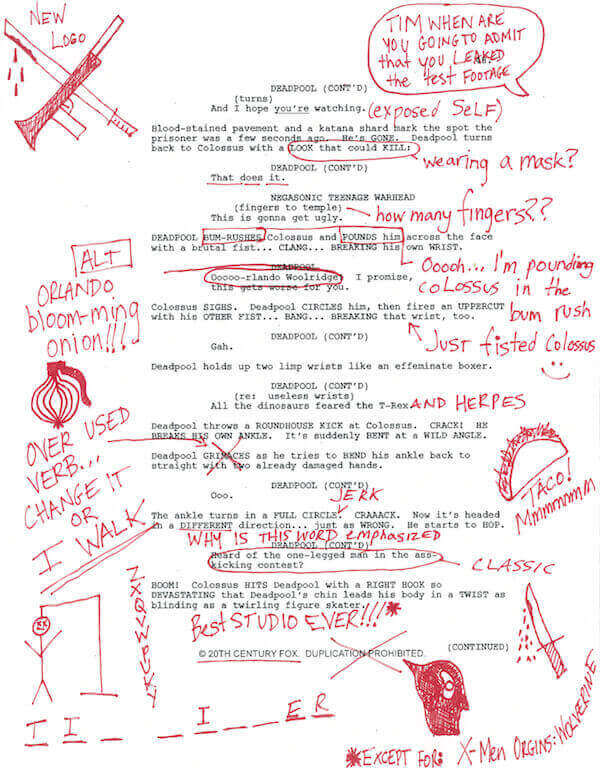 NEW
LOGO
TIM WHEN ARE
YOU GOING TO ADMIT
that you LEAKED
the test FOOTAGE
DEADPOOL (CONT'D)
(turns)
And I hope you're watching.
(exposed SELF)
Blood-stained pavement and a katana shard mark the spot the
prisoner was a few seconds ago. He's GONE. Deadpool turns
back to Colossus with a LOOK that could KILL:
wearing a mask?
DEADPOOL (CONT'D)
That does it.
NEGASONIC TEENAGE WARHEAD
(fingers to temple)
This is gonna get ugly.
how many fingers??
DEADPOOL BUM-RUSHES Colossus and POUNDS him across the face
with a brutal fist... CLANG... BREAKING his own WRIST.
ALT
ORLANDO
bloom-ming
onion!!!!
DEADPOOL
Ooooo-rlando Woolridge. I promise,
this gets worse for you.
Ooooh... I'm pounding
COLOSSUS in the
bum rush
Colossus SIGHS. Deadpool CIRCLES him, then fires an UPPERCUT
with his OTHER FIST... BANG... BREAKING that wrist, too.
Just fisted Colossus
DEADPOOL (CONT'D)
Gah.
Deadpool holds up two limp wrists like an effeminate boxer.
DEADPOOL (CONT'D)
(re: useless wrists)
All the dinosaurs feared the T-Rex.
AND HERPES
OVER USED
VERB...
CHANGE IT
OR
I WALK
Deadpool throws a ROUNDHOUSE KICK at Colossus. CRACK! HE
BREAKS HIS OWN ANKLE. It's suddenly BENT at a WILD ANGLE.
Deadpool GRIMACES as he tries to BEND his ankle back to
straight with two already damaged hands.
TACO!
Mmmmmmm
DEADPOOL (CONT'D)
Ooo.
JERK
The ankle turns in a FULL CIRCLE. CRAAACK. Now it's headed
in a DIFFERENT direction... just as WRONG. He starts to HOP.
WHY IS THIS WORD emphasized
DEADPOOL (CONT'D)
Heard of the one-legged man in the ass-
kicking contest?
CLASSIC
BOOM! Colossus HITS Deadpool with a RIGHT HOOK so
DEVASTATING that Deadpool's chin leads his body in a TWIST as
blinding as a twirling figure skater.
Best STUDIO EVER!!!*
(CONTINUED)
© 20TH CENTURY FOX. DUPLICATION PROHIBITED.
T I _ _ I _ _ _ E R
*EXCEPT FOR: X-Men ORGINS: WOLVERINE